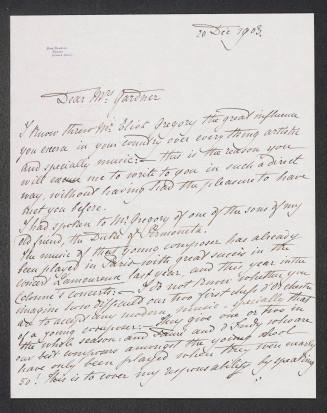 20 Dec 1903.
Dear Mrs Gardner
I know threw Mr Eliot Gregory the great influence
you exera in your country over every thing artistic
and specially music:— this is the reason you
will excuse me to write to you in such a direct
way, without having had the pleasure to have
met you before.
I had spoken to Mr Gregory of one of the sons of my
old friend, the Duke of Pomonets.
The music of this young composer has already
been played in Paris with great succes in the
concert Lamoureux last year, and this year in the
Colonne's concerts:— I do not know whether you
imagine how difficult our two first chefs d'orchestre
are to accept any modern music, specially that
of a young composer:— They give one or two in
the whole season: and and d'Indy who are
our best composers amongst the young school
have only been played when they were nearly
50! This is to cover my responsability by speaking